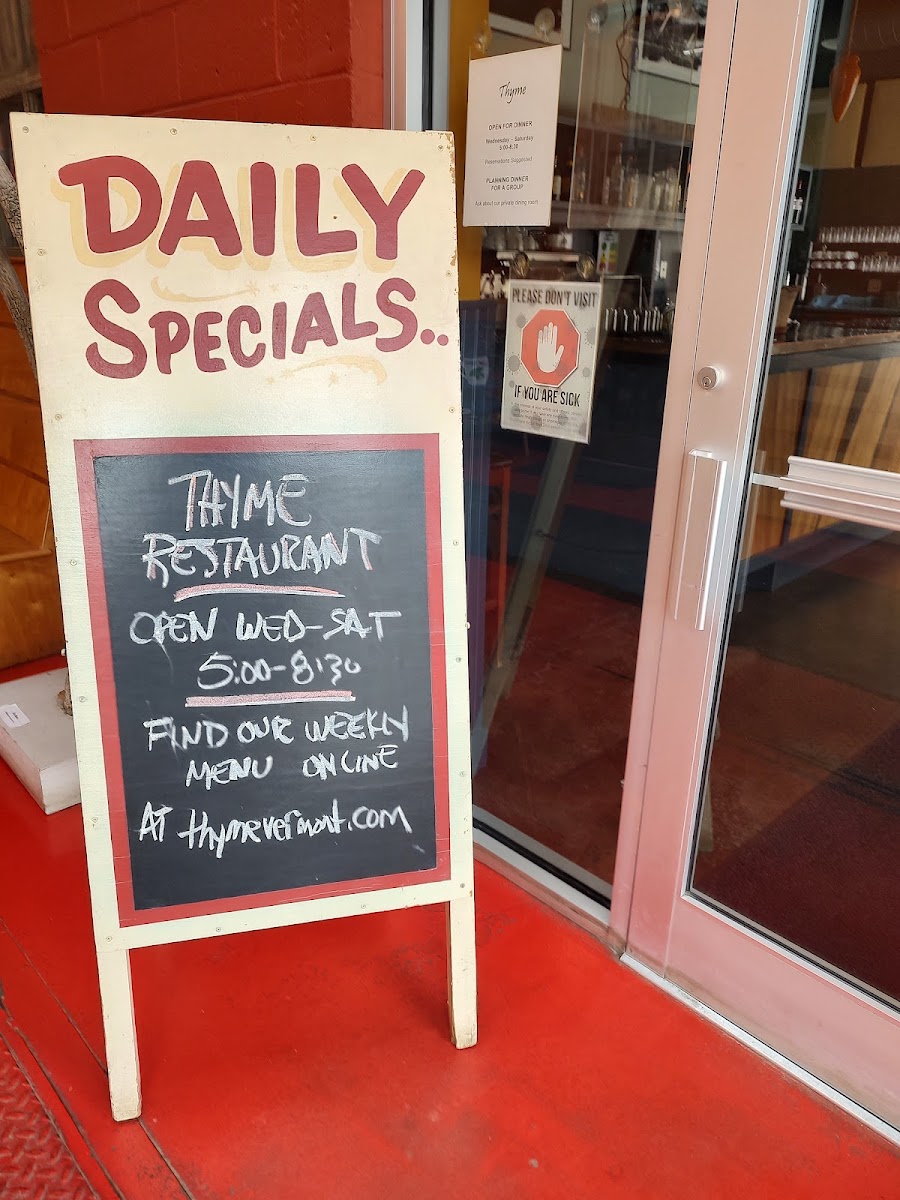 DAILY
SPECIALS..
THYME
RESTAURANT
OPEN WED-SAT
5:00-8:30
FIND OUR WEEKLY
MENU ONLINE
AT thymevermont.com
Thyme
OPEN FOR DINNER
Wednesday - Saturday
5:00-8:30
Reservations Suggested
PLANNING DINNER
FOR A GROUP
Ask about our private dining room
PLEASE DON'T VISIT
IF YOU ARE SICK